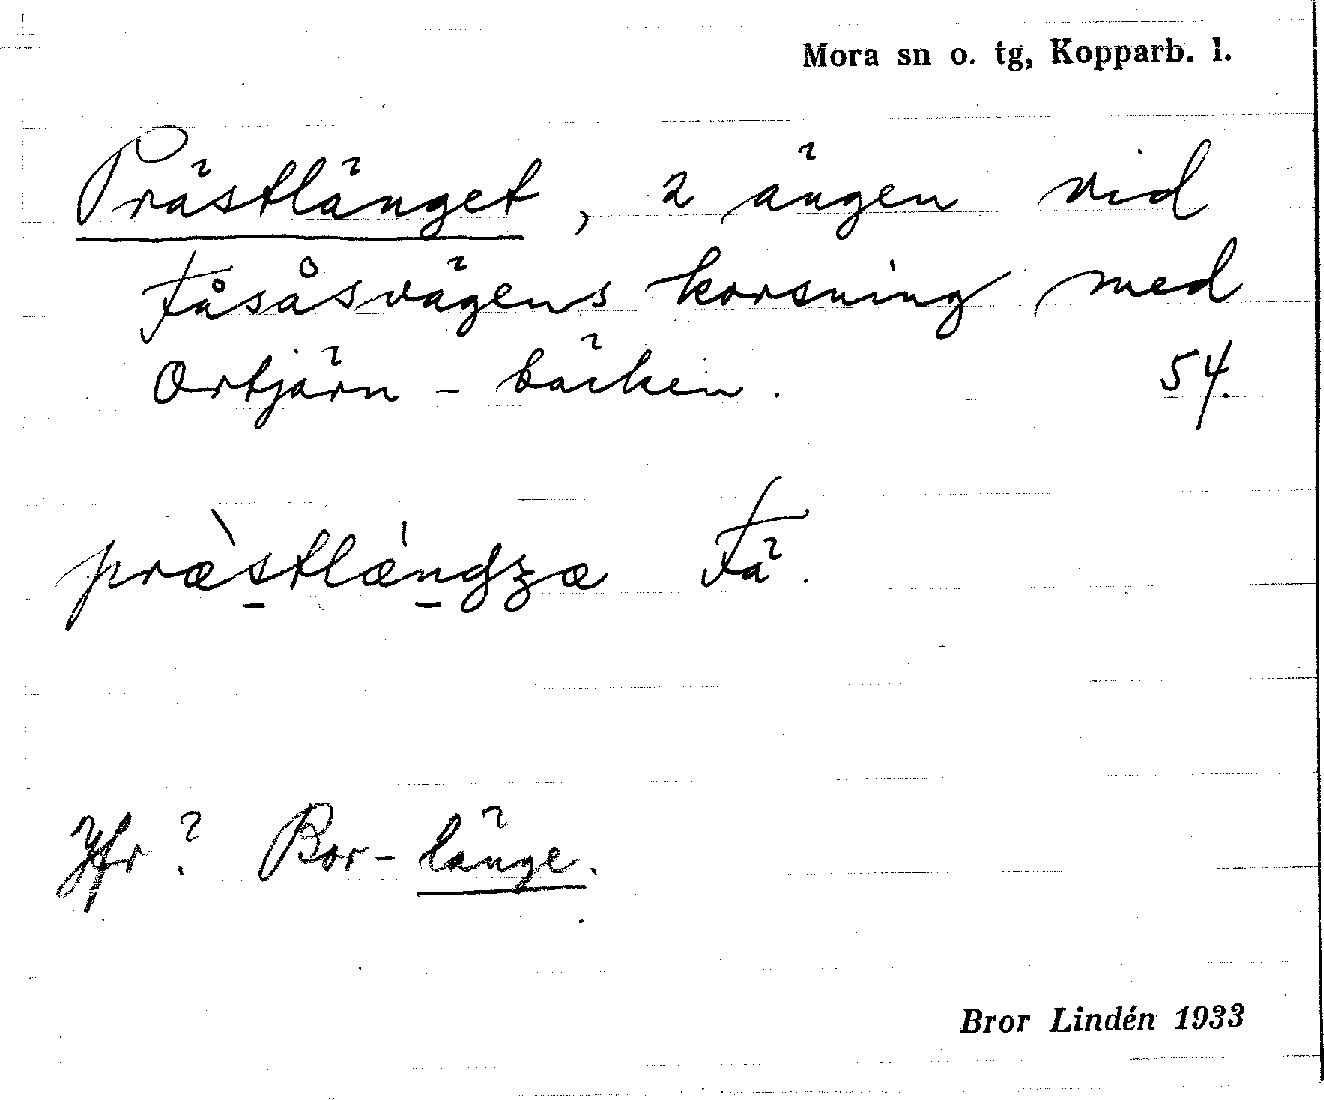 Mora sn o. tg, Kopparb. l.
Prästlänget, 2 ängen vid
Fåsåsvägens korsning med
Ortjärn-bäcken. 54.
præ̀stlǽngʒæ Fä.
Jfr? Bor-länge.
Bror Lindén 1933